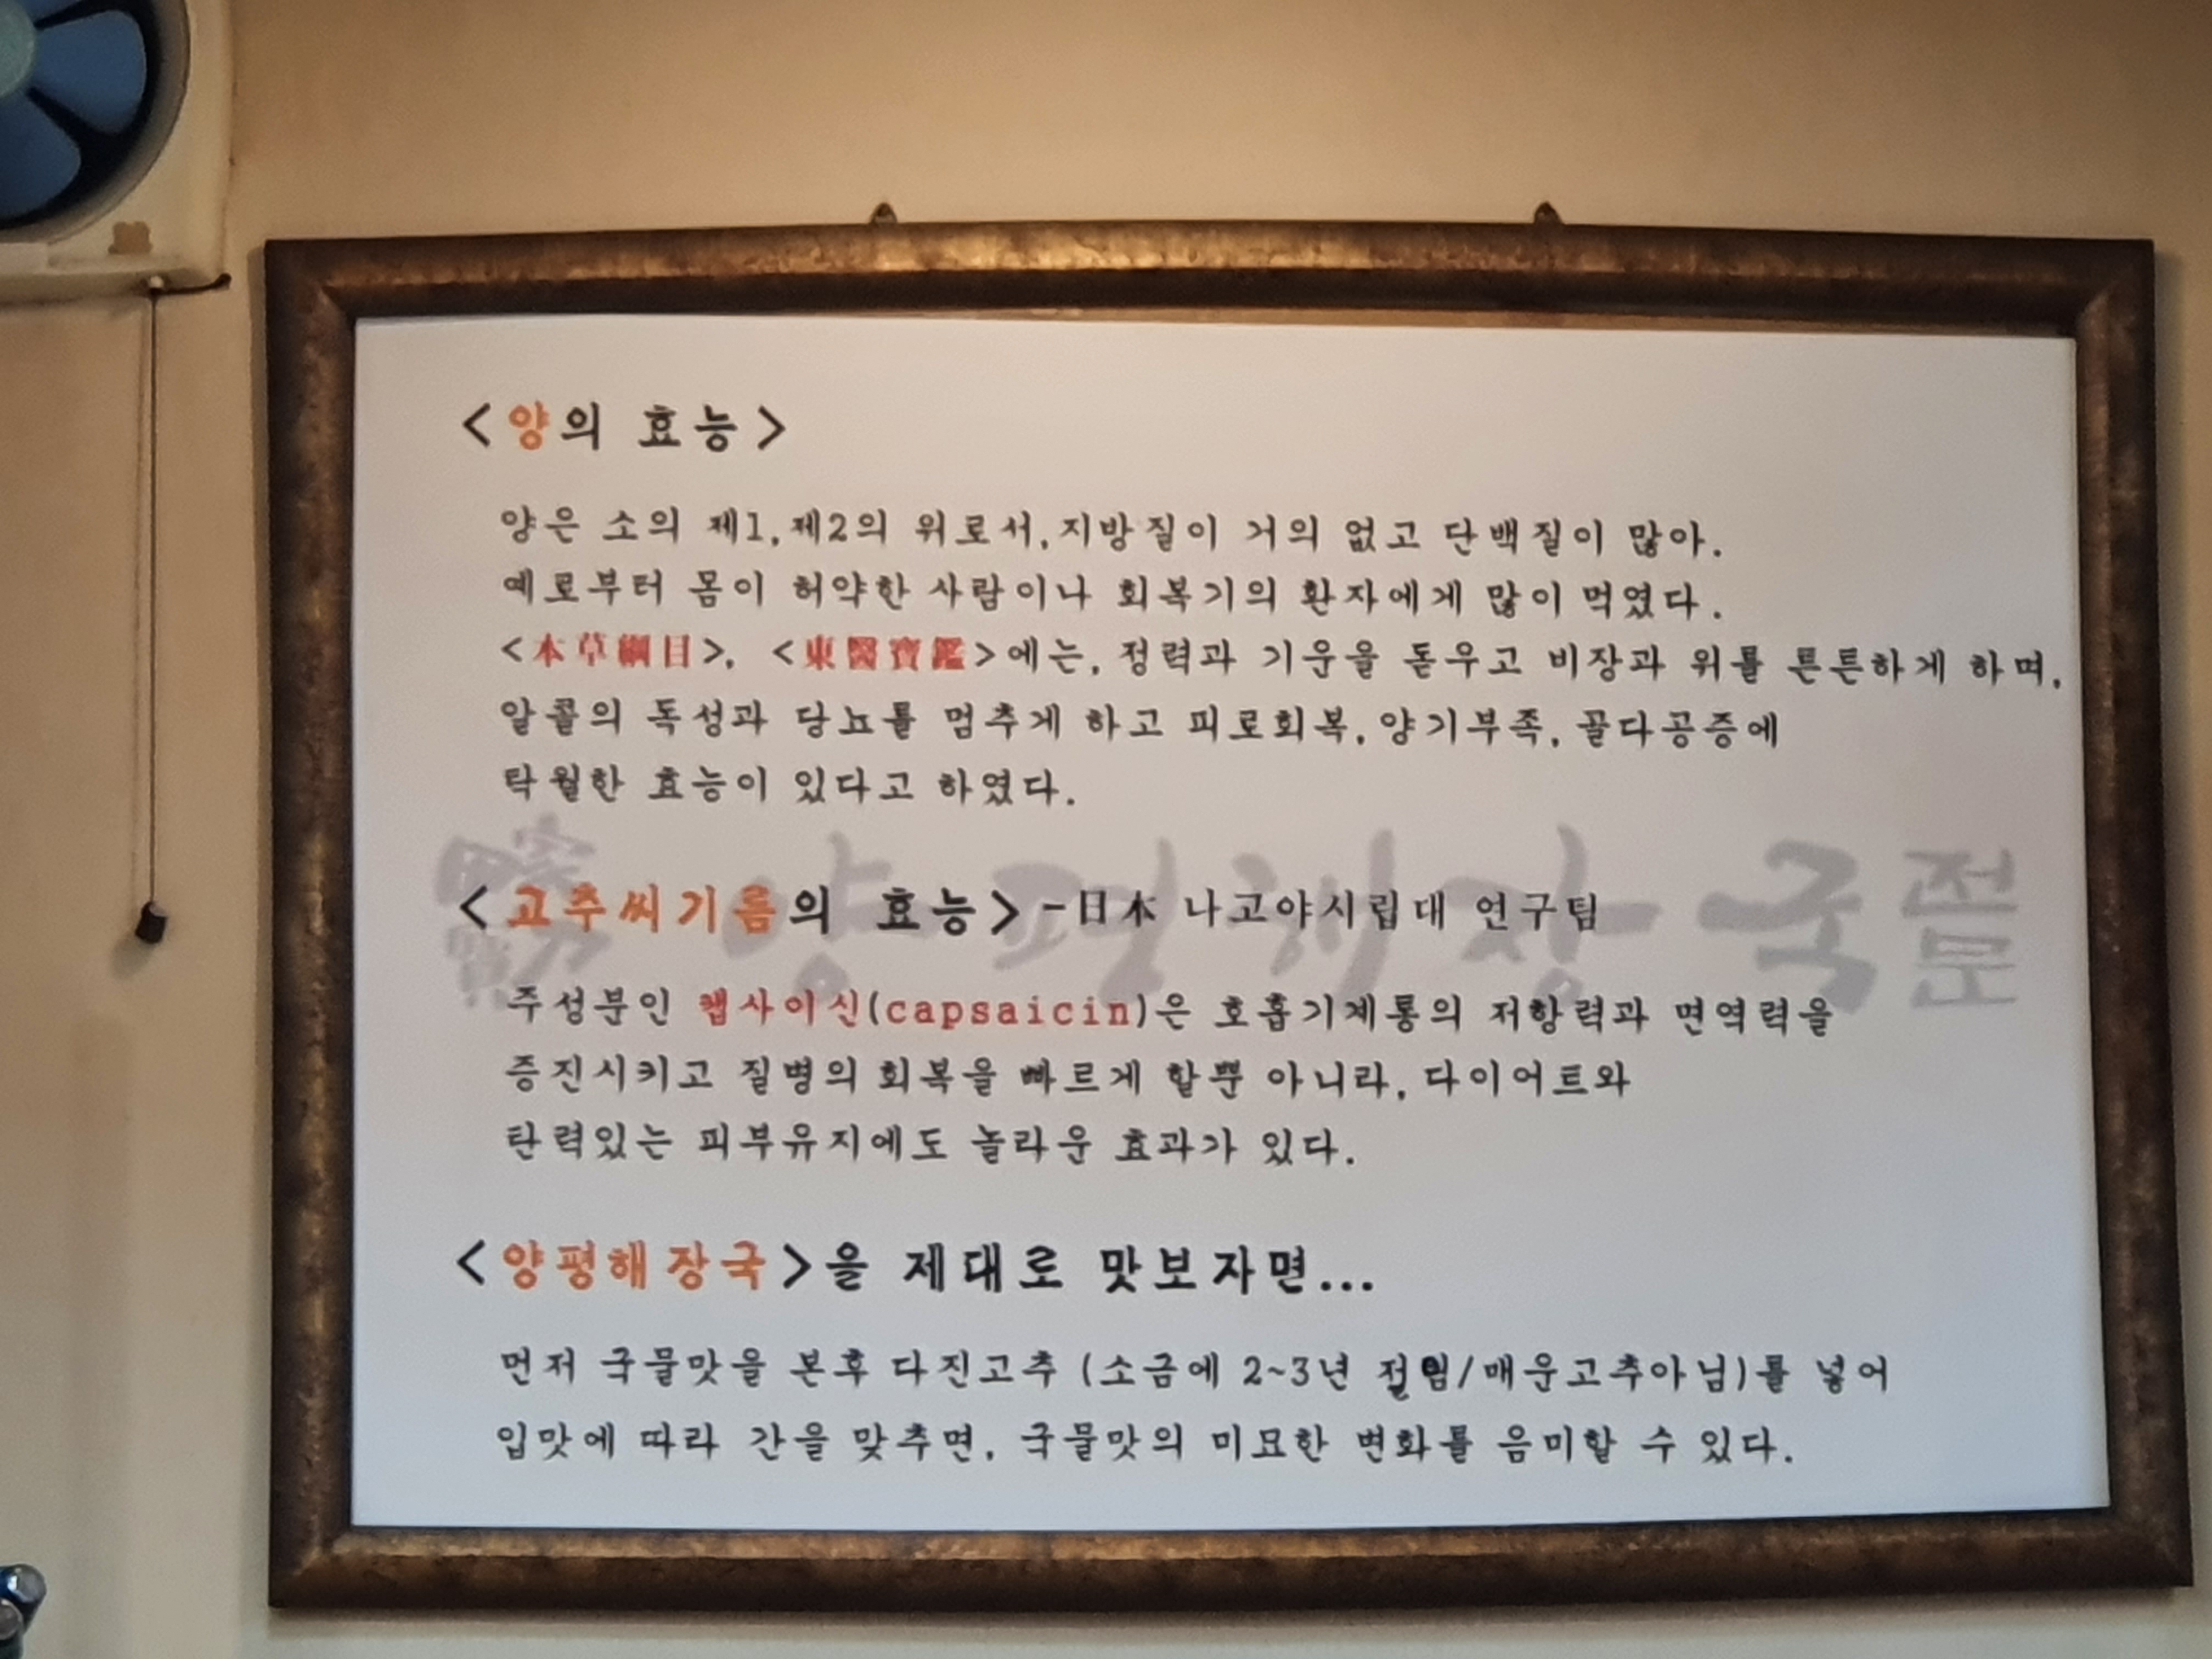 <양의 효능>
양은 소의 제1,제2의 위로서,지방질이 거의 없고 단백질이 많아.
예로부터 몸이 허약한 사람이나 회복기의 환자에게 많이 먹였다.
<本草綱目>, <東醫寶鑑>에는, 정력과 기운을 돋우고 비장과 위를 튼튼하게 하며,
알콜의 독성과 당뇨를 멈추게 하고 피로회복, 양기부족, 골다공증에
탁월한 효능이 있다고 하였다.
양평해장국 전문
<고추씨기름의 효능>-日本 나고야시립대 연구팀
주성분인 캡사이신(capsaicin)은 호흡기계통의 저항력과 면역력을
증진시키고 질병의 회복을 빠르게 할뿐 아니라, 다이어트와
탄력있는 피부유지에도 놀라운 효과가 있다.
<양평해장국>을 제대로 맛보자면...
먼저 국물맛을 본후 다진고추 (소금에 2~3년 절임/매운고추아님)를 넣어
입맛에 따라 간을 맞추면, 국물맛의 미묘한 변화를 음미할 수 있다.